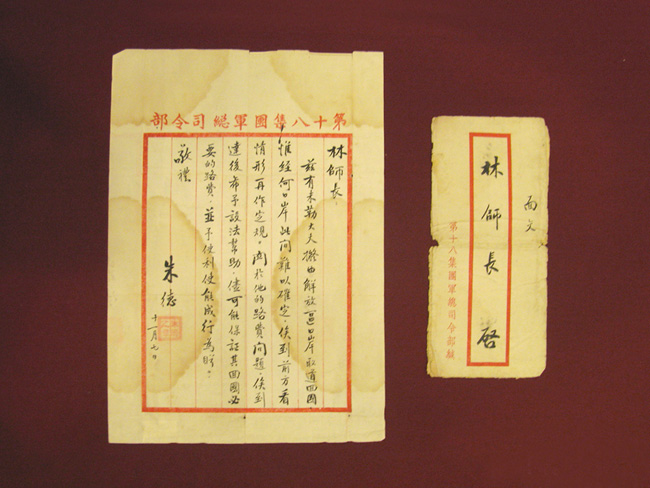 第十八集團軍總司令部
林師長：
茲有米勒大夫擬由解放區口岸取道回國，
惟經何口岸此间難以確定，俟到前方看
情形再作定规。関於他的路費问題，俟到
達後希予設法幫助，儘可能保証其回國必
要的路費，並予便利使能成行為盼。
敬禮
朱德
十一月日
面交
林師長 啓
第十八集團軍總司令部緘